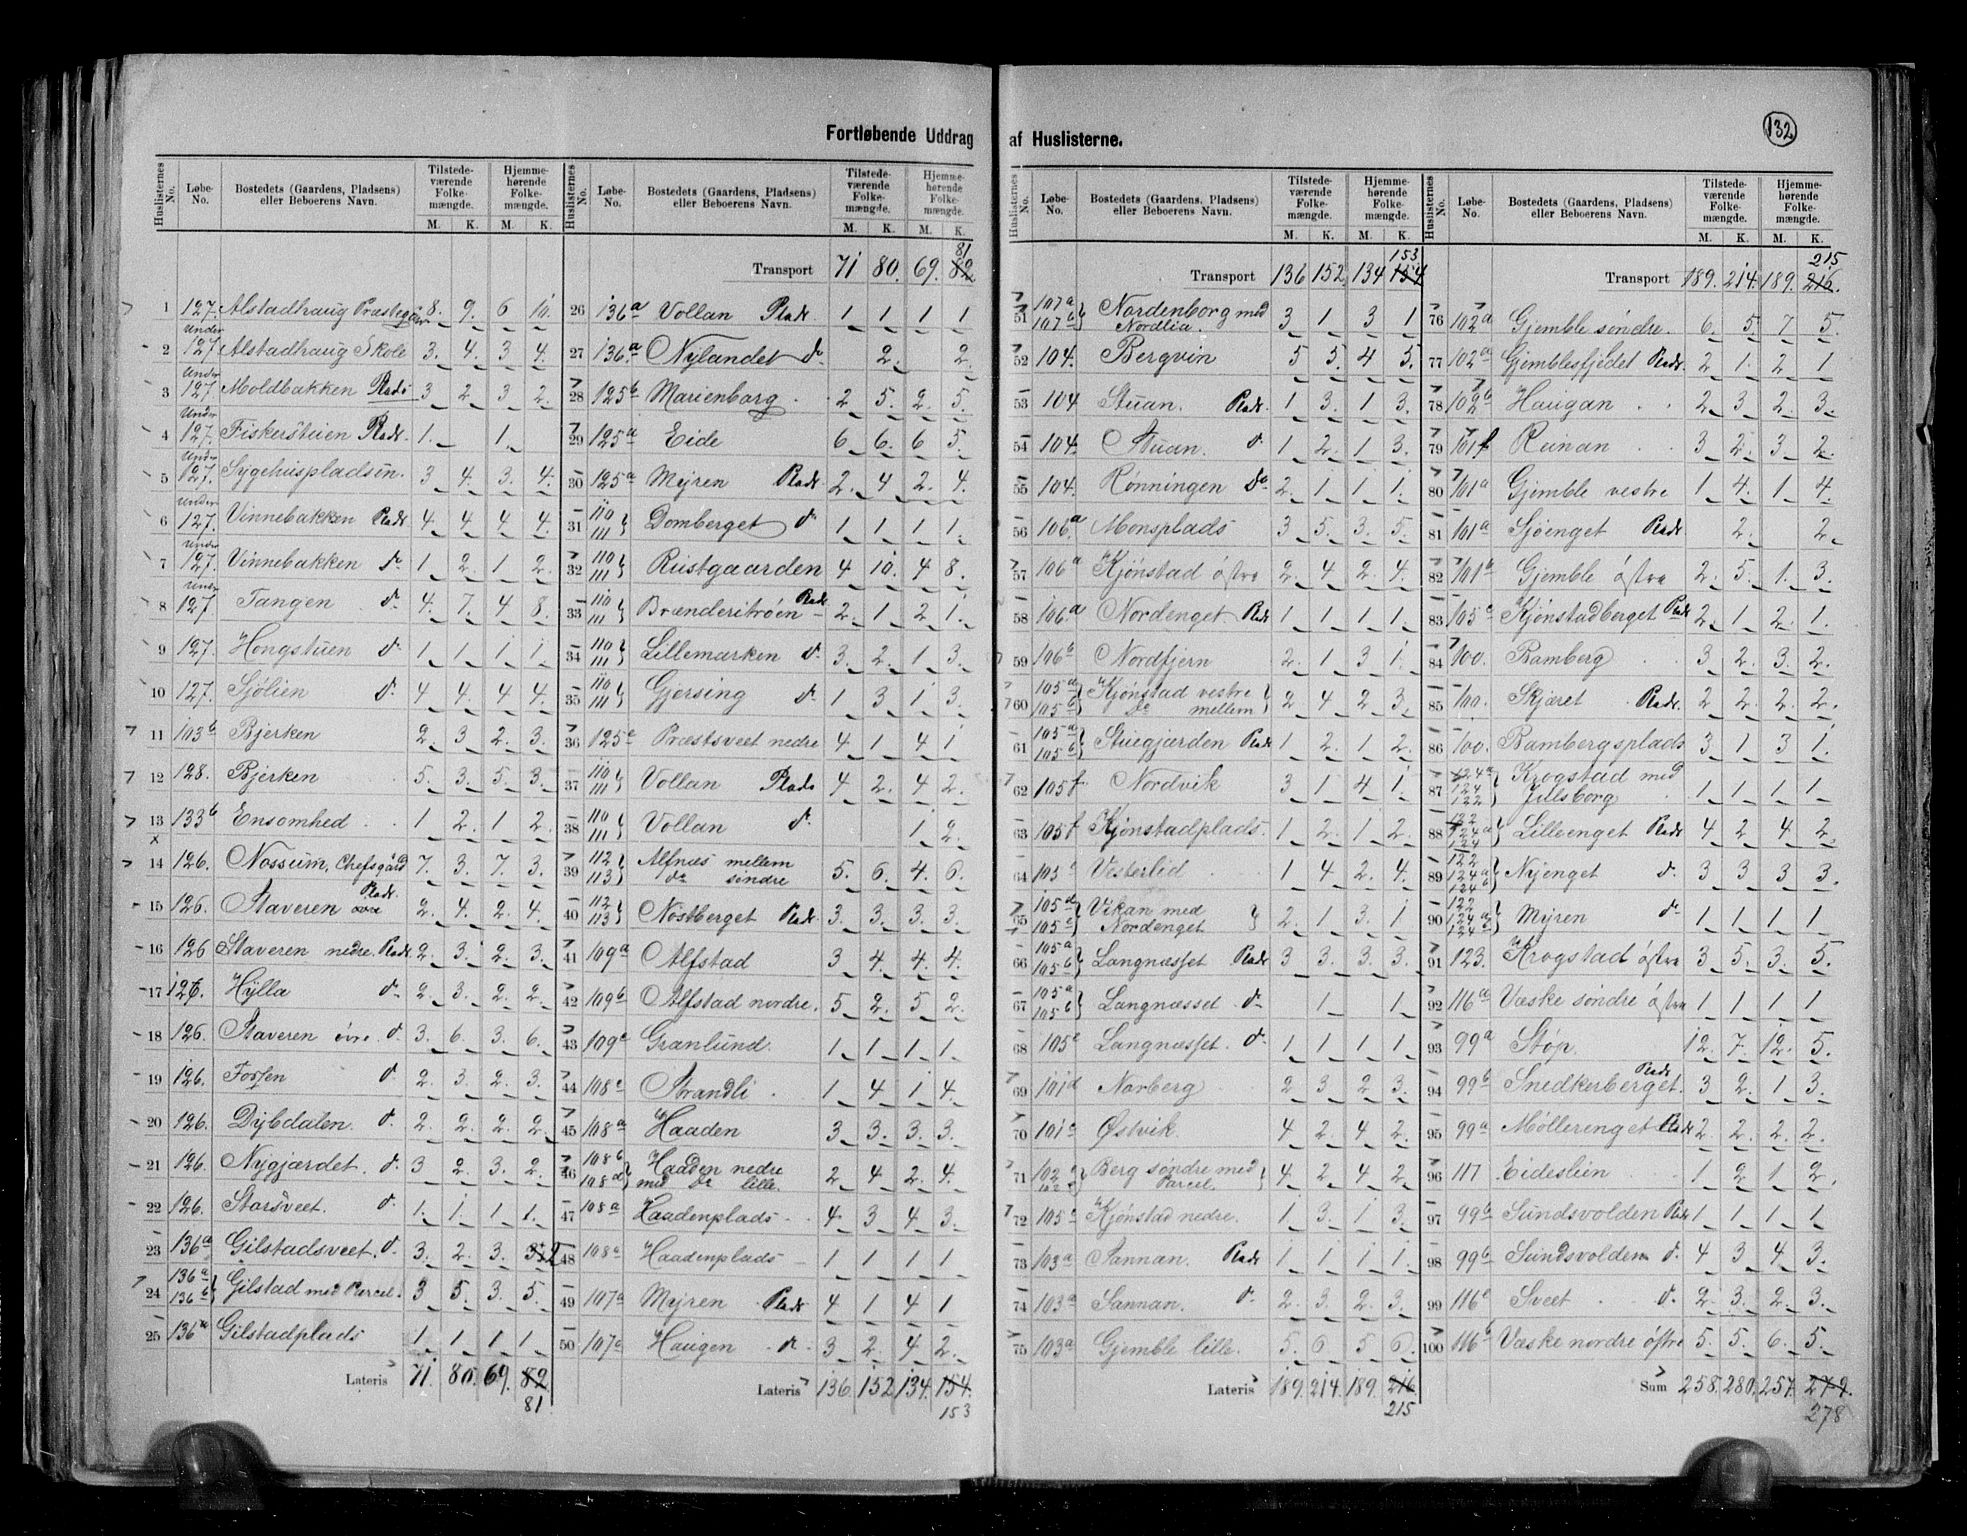 132
Fortløbende Uddrag af Huslisterne.
Huslisternes No. Løbe-No. Bostedets (Gaardens, Pladsens) eller Beboerens Navn. Tilstedeværende Folkemængde. M. K. Hjemmehørende Folkemængde. M. K.
1 127. Alstadhaug Præstegaar 8. 9. 6 10.
2 Under 127. Alstadhaug Skole 3. 4. 3 4.
3 Under 127. Moldbakken Plads 3 2 3 2.
4 Under 127. Fiskerstuen Plads. 1. 1.
5 Under 127. Sygehuspladsen. 3 4. 3. 4.
6 Under 127. Vinnebakken Plads 4. 4 4 4.
7 Under 127. Vinnebakken do 1 2 1 2.
8 Under 127. Tangen do 4. 7 4 8.
9 127. Hongstuen do 1 1 1 1
10 127. Sjølien do 4 4. 4 4.
11 103b Bjerken 2. 3 2. 3.
12 128. Bjerken 5. 3. 5 3.
13 133b Ensomhed 1 2 1 2.
14 126. Nossum, Chefsgård 7. 3. 7. 3.
15 126. Staveren øvre Plads. 2. 4. 2. 4.
16 126 Staveren nedre. Plads. 2. 3. 2. 3.
17 126. Hylla do 2. 3. 2. 2.
18 126. Staveren øvre do 3. 6. 3. 6.
19 126. Forsen do 2. 3. 2. 3.
20 126. Dybdalen. do 2. 2. 2. 2.
21 126. Nygjærdet. do 3 2. 3. 2.
22 126. Storsveet. do 1. 1. 1 1.
23 136a Gilstadsveet. do 3. 2. 3. 2
24 136a 136b Gilstad med Parcel. 3 5. 3. 5.
25 136a Gilstadplads 1 1 1 1
Lateris 71. 80. 69. 82 81
Huslisternes No. Løbe-No. Bostedets (Gaardens, Pladsens) eller Beboerens Navn. Tilstedeværende Folkemængde. M. K. Hjemmehørende Folkemængde. M. K.
Transport 71 80. 69. 82 81
26 136a Vollan Plads. 1 1 1 1
27 136a Nylandet do 2. 2.
28 125b Marienborg 2 5. 2. 5.
29 125a Eide 6 6. 6 5.
30 125a Myren Plads. 2. 4 2. 4.
31 110 111 Domberget do 1 1 1 1.
32 110 111 Rustgaarden 4 10. 4 8.
33 110 111 Brænderitrøen Plads 2 1 2 1.
34 110 111 Lillemarken do 3. 2. 1 3.
35 110 111 Gjørsing do 1 3 1 3.
36 125c Præstsveet nedre 4 1 4 1
37 110 111 Vollan Plads 4 2. 4 2.
38 110 111 Vollan do 1 2.
39 112 113 Alfnæs mellem do søndre 5. 6. 4. 6.
40 112 113 Nøstberget Plads. 3. 3. 3. 3.
41 109a Alfstad 3 4. 4. 4.
42 109b Alfstad nordre. 5 2. 5 2.
43 109c Grænlund. 1 1 1 1.
44 108c Strandli 1 4 1 4.
45 108a Haaden 3 3. 3. 3.
46 108b 108d Haaden nedre med do lille. 2 4 2. 4.
47 108a Haadenplads 4. 3 4. 3.
48 108a Haadenplads 1 1 1 1
49 107a Myren Plads 4 1 4 1
50 107a Haugen do 3 2. 4 2.
Lateris 136. 152 134. 154. 153
Huslisternes No. Løbe-No. Bostedets (Gaardens, Pladsens) eller Beboerens Navn. Tilstedeværende Folkemængde. M. K. Hjemmehørende Folkemængde. M. K.
Transport 136 152 134 154 153
51 107a 107b Nordenborg med Nordlia. 3 1 3 1
52 104. Bergvin 5 5. 4 5.
53 104 Stuan. Plads. 1 3. 1 3.
54 104. Stuan. do 1 2. 1 3.
55 104. Rønningen do 2. 1 1 1.
56 106a Monsplads 3 5. 3. 5.
57 106a Kjønstad østre 2. 4 2. 4.
58 106a Nordenget. Plads 1 1 1 1
59 106b Nordfjern 2. 1 3 1.
60 105a 105b Kjønstad vestre do mellem 2 4 2. 3
61 105a 105b Stuegjærden Plads 1 2. 1 2.
62 105f. Nordvik 3 1 4 1.
63 105f Kjønstadplads. 1 2. 1 2.
64 105c Vesterlid 1 4 2. 4.
65 105d 105c Vikan med Nordenget 2. 1 3. 1
66 105a 105b Langnæsset Plads 3 3. 3. 3.
67 105a 105b Langnæsset do 1 1
68 105c Langnæsset. do 1 1 1 1
69 101d Norberg 2 3 2 3.
70 101c Østvik. 4 2 4 2.
71 102 Berg søndre med Parcel. 4 2 4 2.
72 105c Kjønstad nedre. 1 3. 1 3.
73 103a Sannan. Plads 1 1 1 1
74 103a Sannan. do 2. 3. 2 3.
75 103a Gjemble lille. 5. 6 5 6.
Lateris 189. 214. 189. 216 215
Huslisternes No. Løbe-No. Bostedets (Gaardens, Pladsens) eller Beboerens Navn. Tilstedeværende Folkemængde. M. K. Hjemmehørende Folkemængde. M. K.
Transport 189. 214. 189. 216. 215
76 102a Gjemble søndre. 6. 5. 7 5.
77 102a Gjemblesfjedet Plads. 2 1. 2 1
78 102b Haugan 2 3 2. 3.
79 101f Reinan 3 2. 3 2.
80 101a Gjemble vestre 1 4. 1 4.
81 101a Sjøenget Plads 2. 2.
82 101b Gjemble østre 2. 5. 1. 3.
83 105a Kjønstadberget Plads 2. 1 2. 1.
84 100. Bamberg 3 2. 3 2.
85 100. Skjæret Plads. 2 2. 2 2.
86 100. Bambergsplads 3 1 3 1.
87 124a 124 122 Krogstad med Jillsborg 1 1 1 1
88 122 124a 124 Lilleenget Plads 4 2 4 2.
89 122 124a 124b Nyenget do 3 3 3 3.
90 122 124a Myren do 1 1 1 1.
91 123. Krogstad østre 3. 5. 3. 5.
92 116a Væske søndre østre 1 1 1 1
93 99a Støp. 12. 7. 12. 5.
94 99b Snedkerberget. Plads 3 2. 1 3.
95 99a Møllerenget Plads 2. 2. 2. 2.
96 117 Eideslien 1 2 1 2.
97 99b Sundsvolden Plads 1 1 1 1
98 99b Sundsvolden do 4 3 4 3.
99 116c Sveet do 2. 3. 2. 3.
100 116b Væske nordre østre 5. 5. 6. 5.
Sum 258. 280. 257. 279. 278